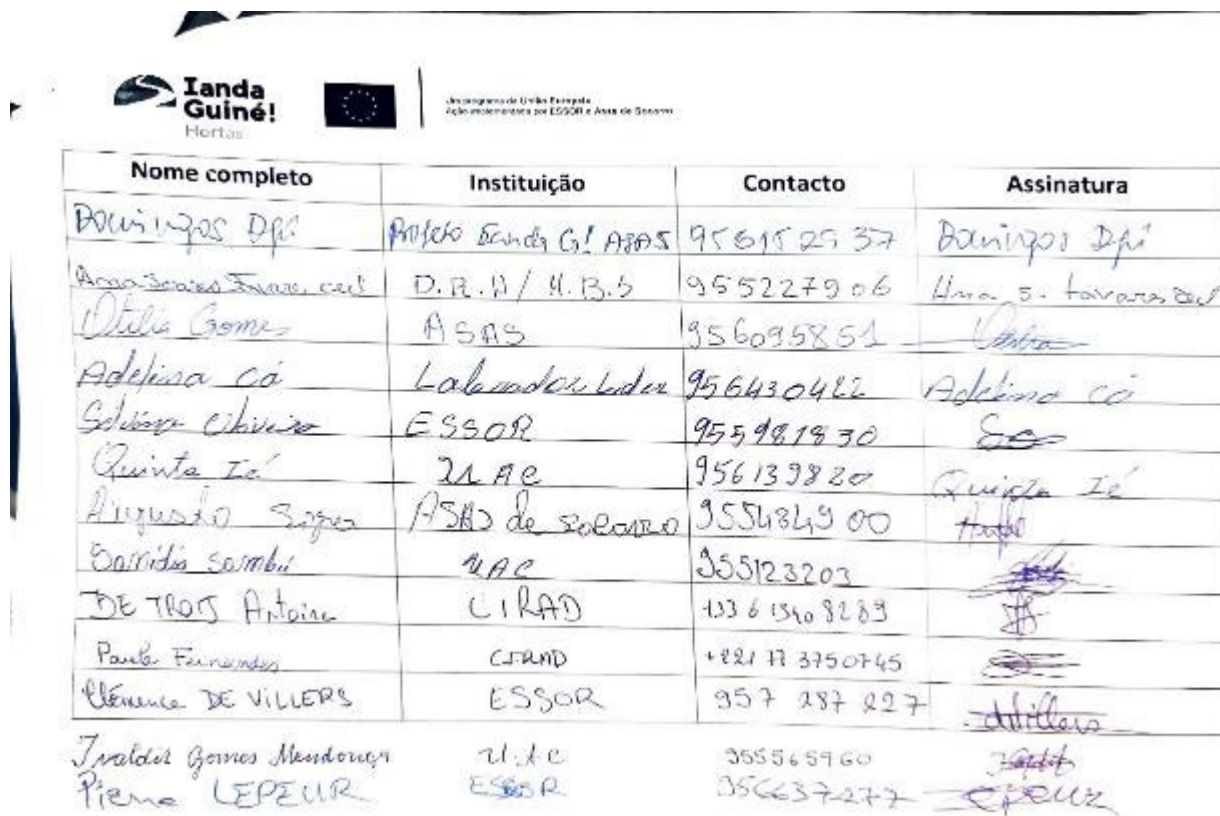 Ianda
Guiné!
Hortas
Um programa da União Europeia
Ação implementada por ESSOR e Asas de Socorro
Nome completo Instituição Contacto Assinatura
Domingos Dfi Projeto Ianda G! ASAS Domingos Dfi
D.R.H / H.B.S 955227906 Ana S. Tavares
Otilia Gomes ASAS 956095851
Adelina Cá Lider 956430422 Adelina Cá
Oliveira ESSOR 955981830
Quinta Ié UAC 956139820 Quinta Ié
Augusto ASAS de Socorro 955484900
Sambú UAC 955123203
DE TROIJ Antoine CIRAD
Paula Fernandes CIRAD +221 77 3750745
Clémence DE VILLERS ESSOR 957 287 227
Gomes Mendonça U.A.C 955565960
Pierre LEPEUR ESSOR 956637277